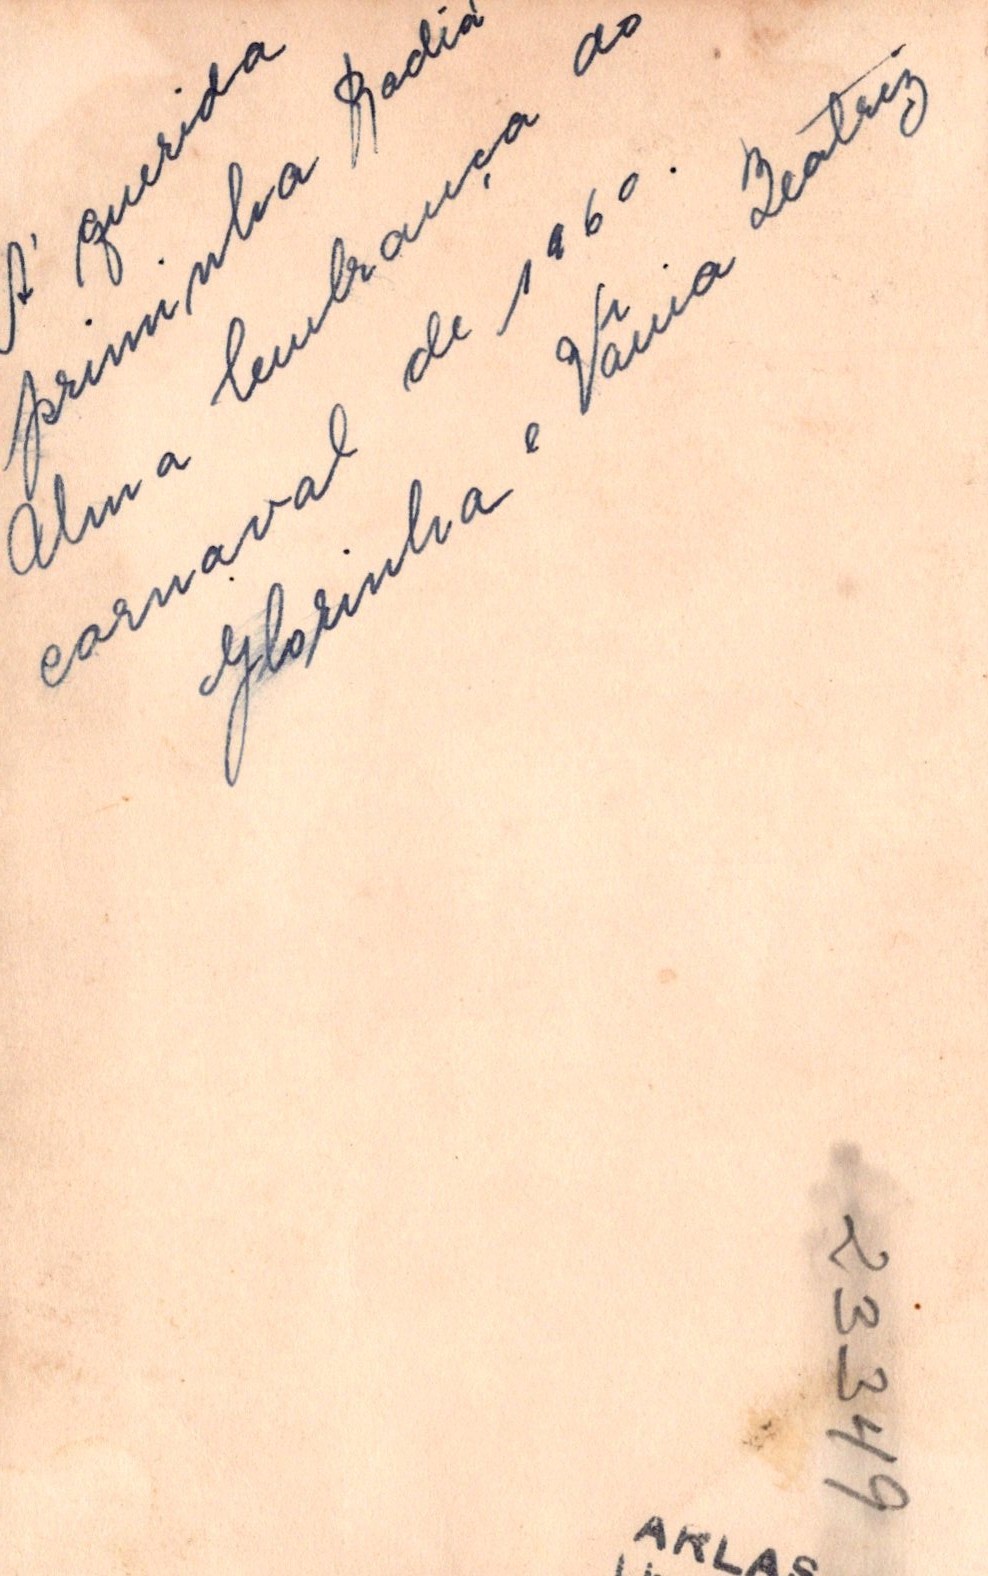 A' querida
priminha Kadiá
Alma lembrança do
carnaval de 1960.
Glorinha e Vânia Beatriz
23349